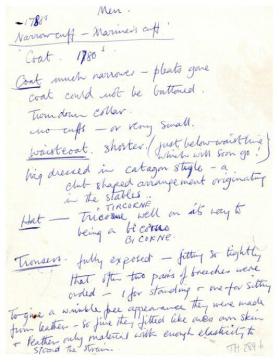 Men.
-1780s
Narrow cuff - Mariner's cuff
'Coat. 1780s
Coat much narrower - pleats gone
coat could not be buttoned.
Turndown collar.
no cuffs - or very small.
Waistcoat. shorter (just below waistline
which will soon go!
Wig dressed in catagon style - a
club shaped arrangement originating
in the stables.
TRICORNE
Hat - Tricorne well on its way to
being a bicorne
BICORNE
Trousers. fully exposed - fitting so tightly
that often two pairs of breeches were
ordered - 1 for standing & one for sitting
To give a wrinkle free appearance they were made
from leather - so fine they fitted like one's own skin
& leather only material with enough elasticity to
stand the strain.
TH 289 b